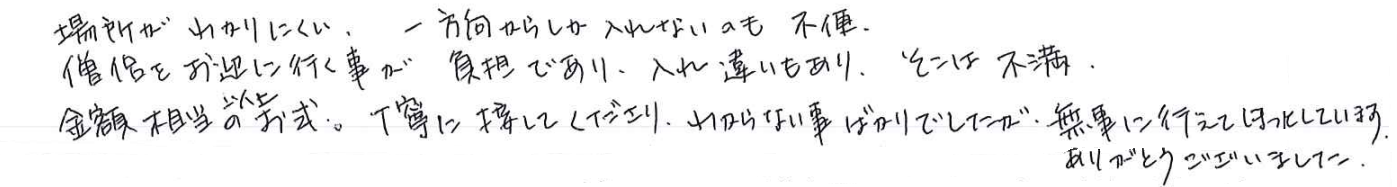 場所がわかりにくい、一方向からしか入れないのも不便。
僧侶をお迎えに行く事が負担であり、入れ違いもあり、そこは不満。
金額相当以上のお式。丁寧に接してくださり、わからない事ばかりでしたが、無事に行えてほっとしています。
ありがとうございました。